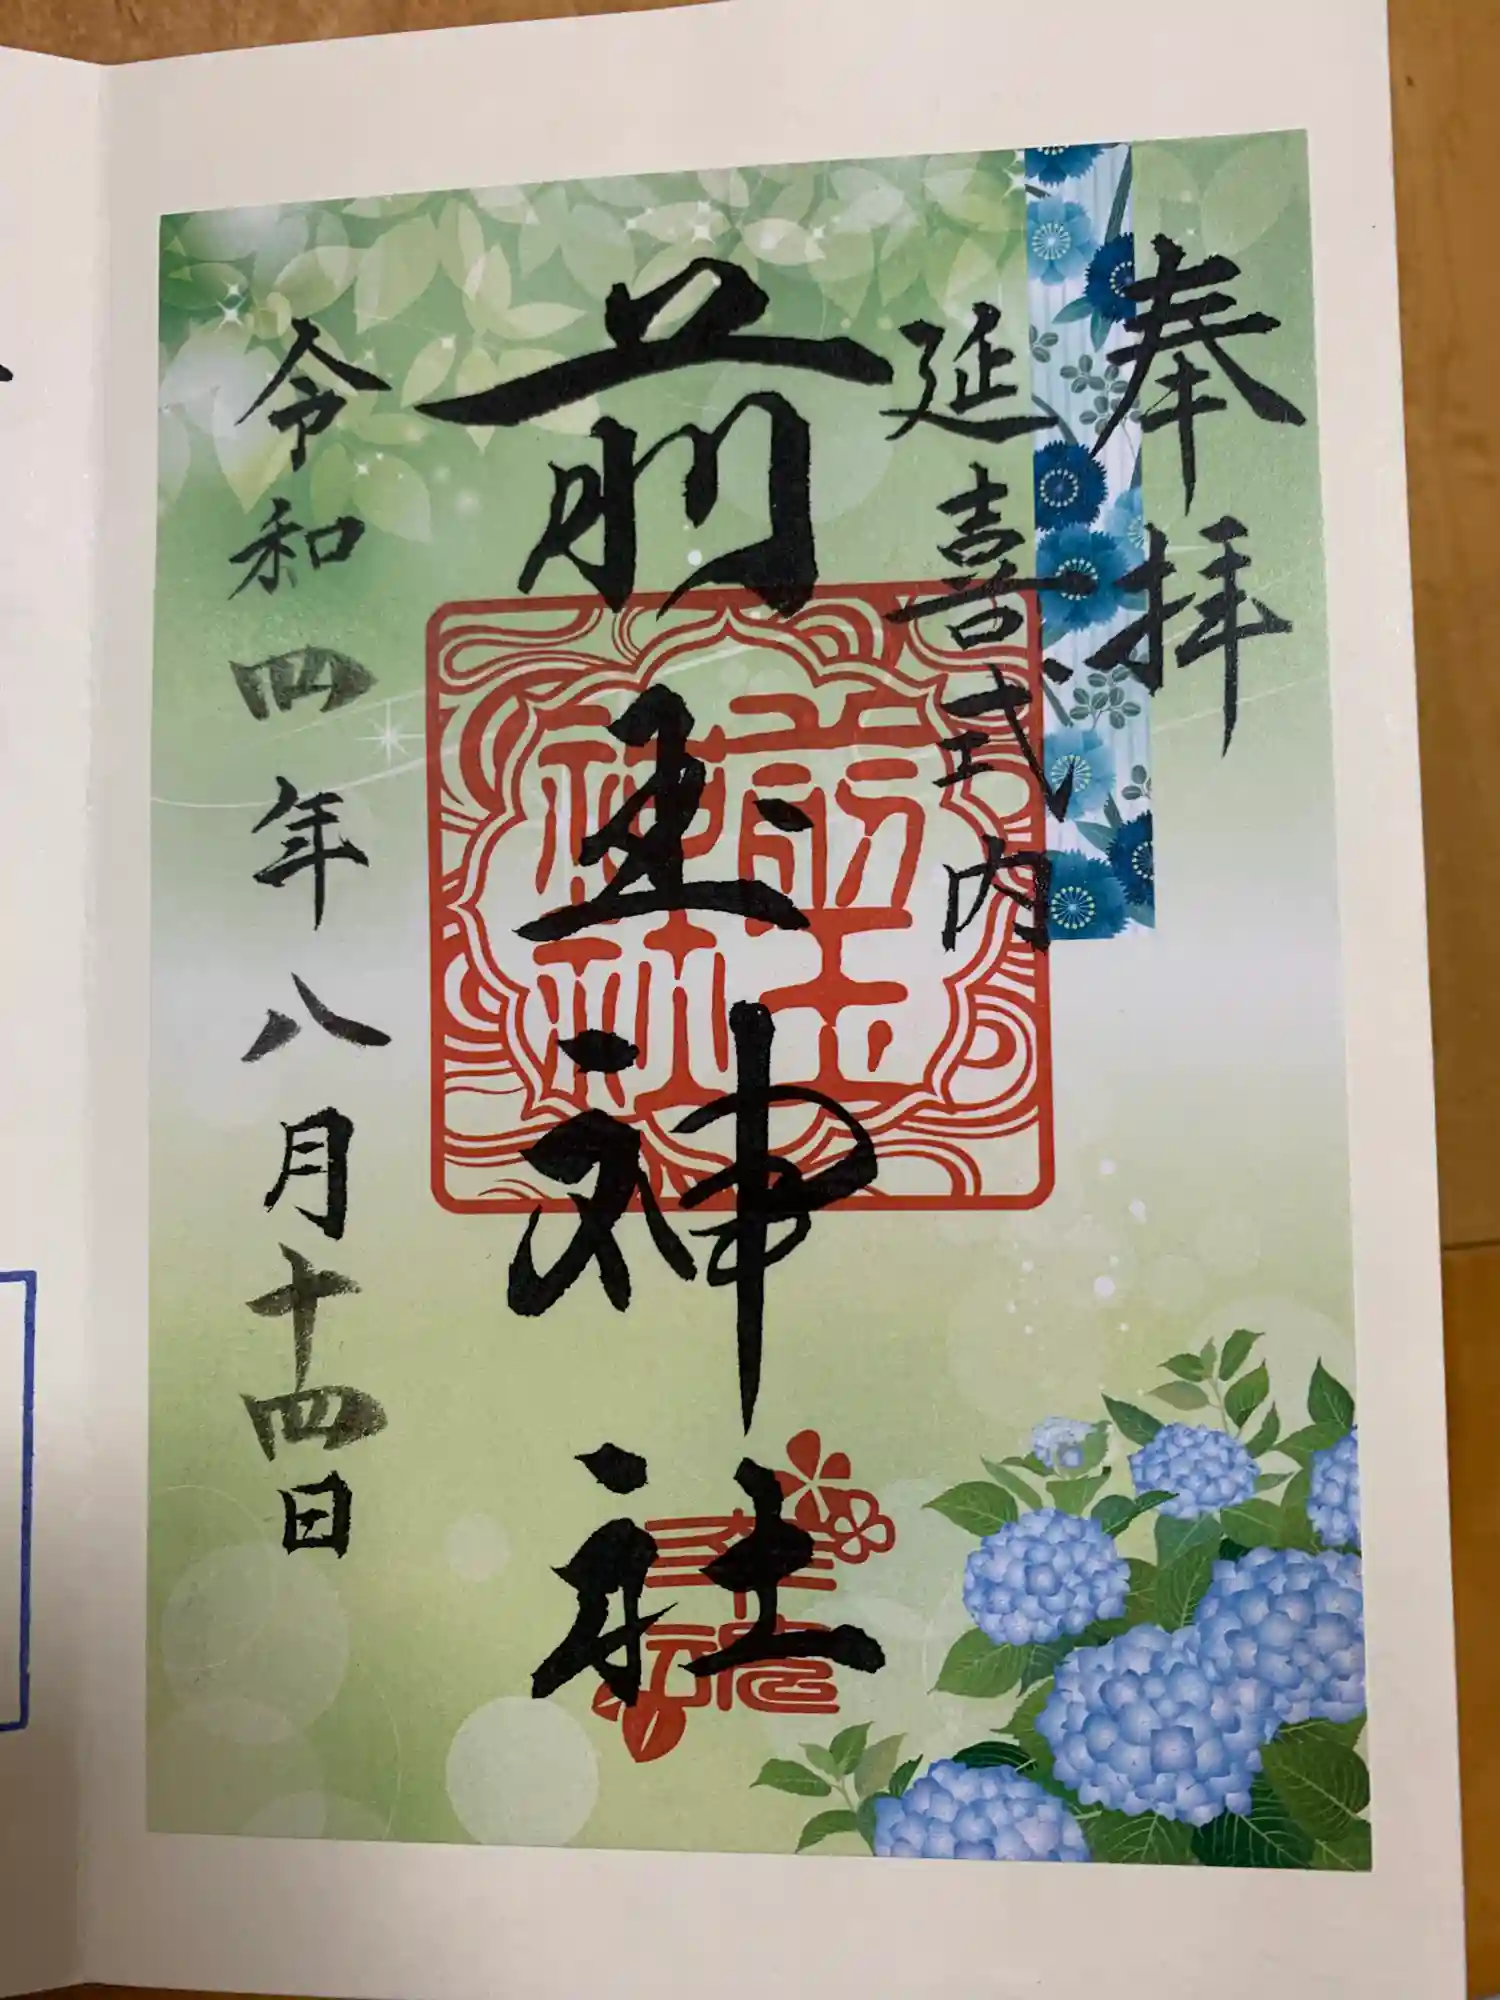 奉拝
延喜式内
前玉神社
前玉神社
幸魂
令和四年八月十四日